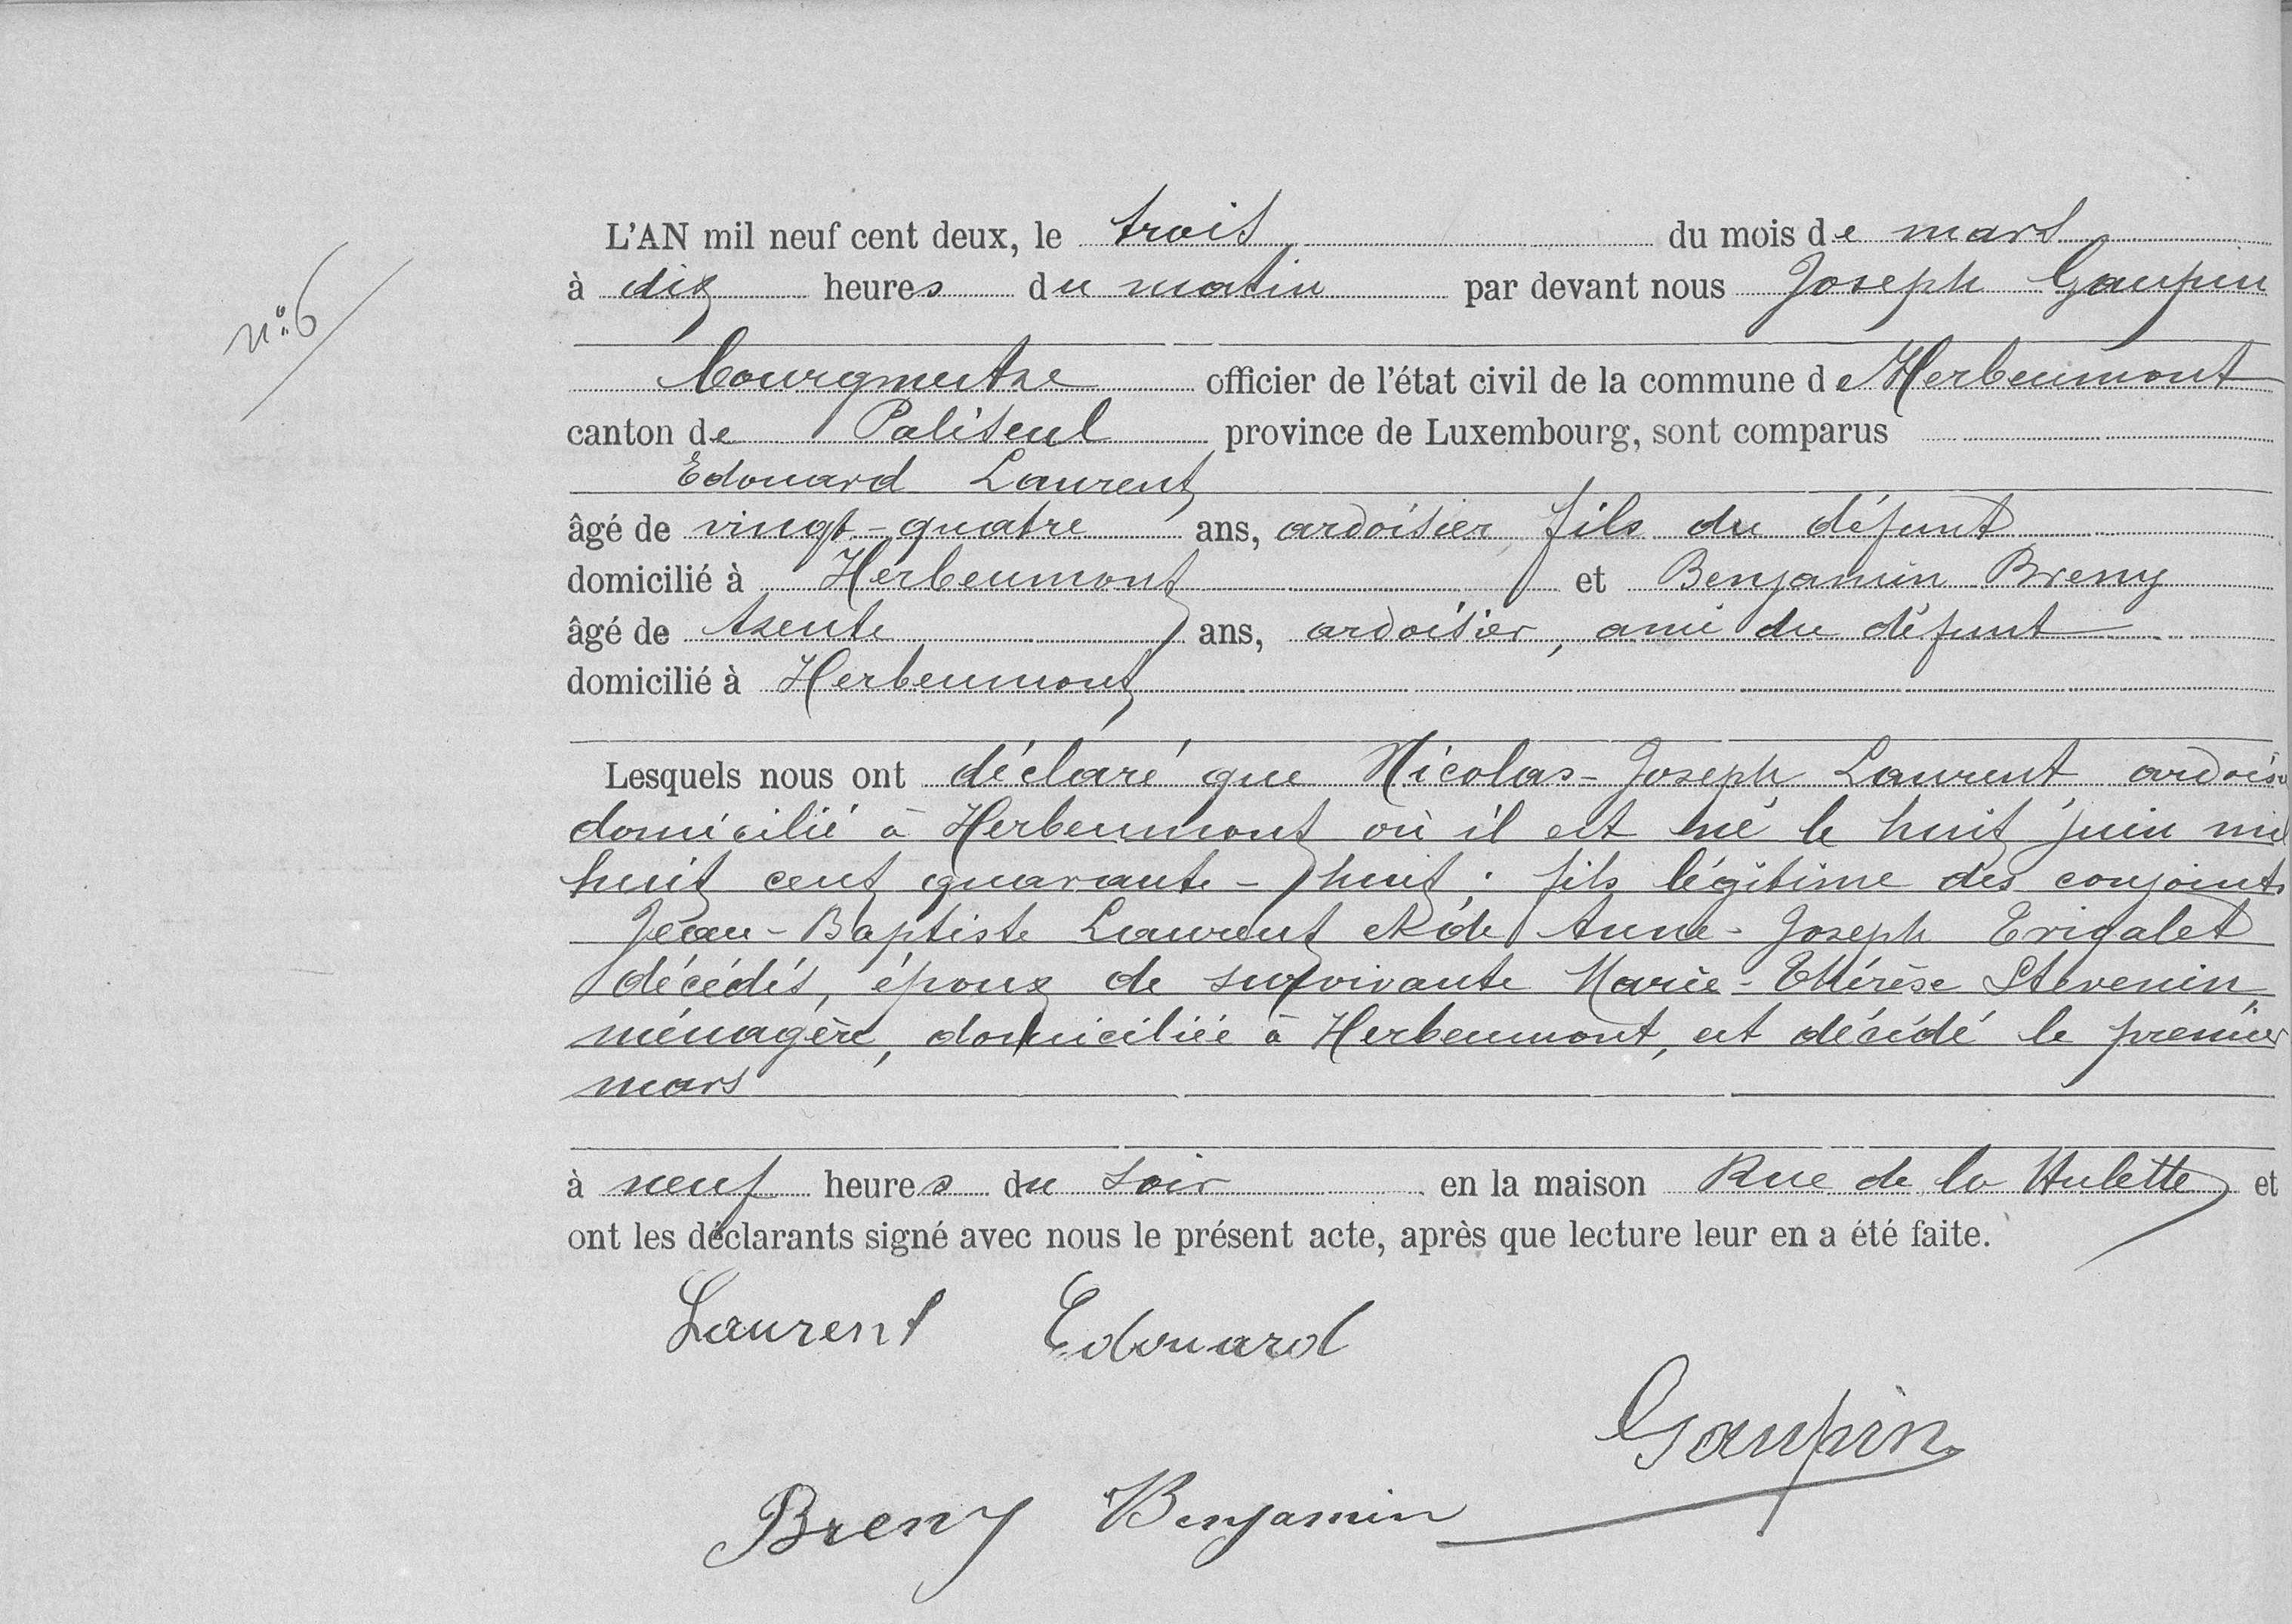 n° 6
L'AN mil neuf cent deux, le trois du mois de mars
à dix heures du matin par devant nous Joseph Gaupin
bourgmestre officier de l'état civil de la commune de Herbeumont
canton de Paliseul province de Luxembourg, sont comparus
Edouard Laurent
âgé de vingt-quatre ans, ardoisier, fils du défunt
domicilié à Herbeumont et Benjamin Breny
âgé de trente ans, ardoisier, ami du défunt
domicilié à Herbeumont
Lesquels nous ont déclaré que Nicolas-Joseph Laurent ardoisi
domicilié à Herbeumont où il est né le huit juin mil
huit cent quarante-huit ; fils légitime des conjoints
Jean-Baptiste Laurent et de Anne-Joseph Trigalet
décédés, époux de survivante Marie-Thérèse Stevenin,
ménagère, domiciliée à Herbeumont, est décédé le premier
mars
à neuf heures du soir en la maison Rue de la Hulette et
ont les déclarants signé avec nous le présent acte, après que lecture leur en a été faite.
Laurent Edouard
Gaupin
Breny Benjamin